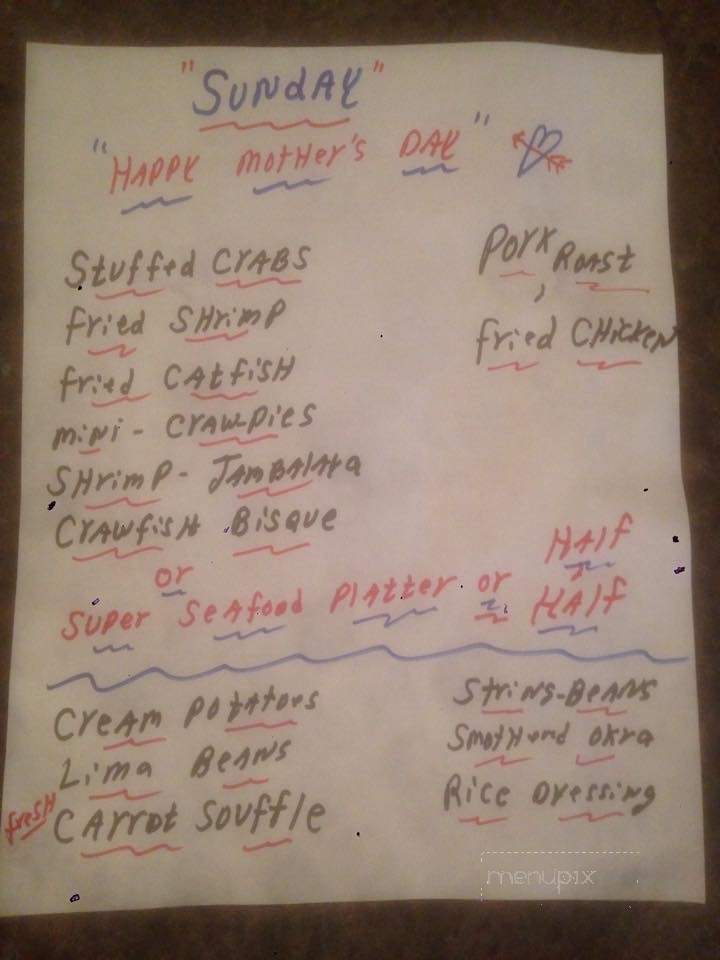 "SUNDAY"
"HAPPY MOTHER'S DAY"
Stuffed CRABS
fried SHrimP
fried CAtfisH
mini - CrAWPies
SHrimP - JAMBALAYA
CrAWfisH Bisque
Pork Roast
fried CHicken
or
SUPer SeAfood PLAtter or HALf HALf
CreAm PotAtoes
Lima BeANs
fresH CArrot Souffle
String-BeANs
SmotHered okra
Rice Dressing
menupix